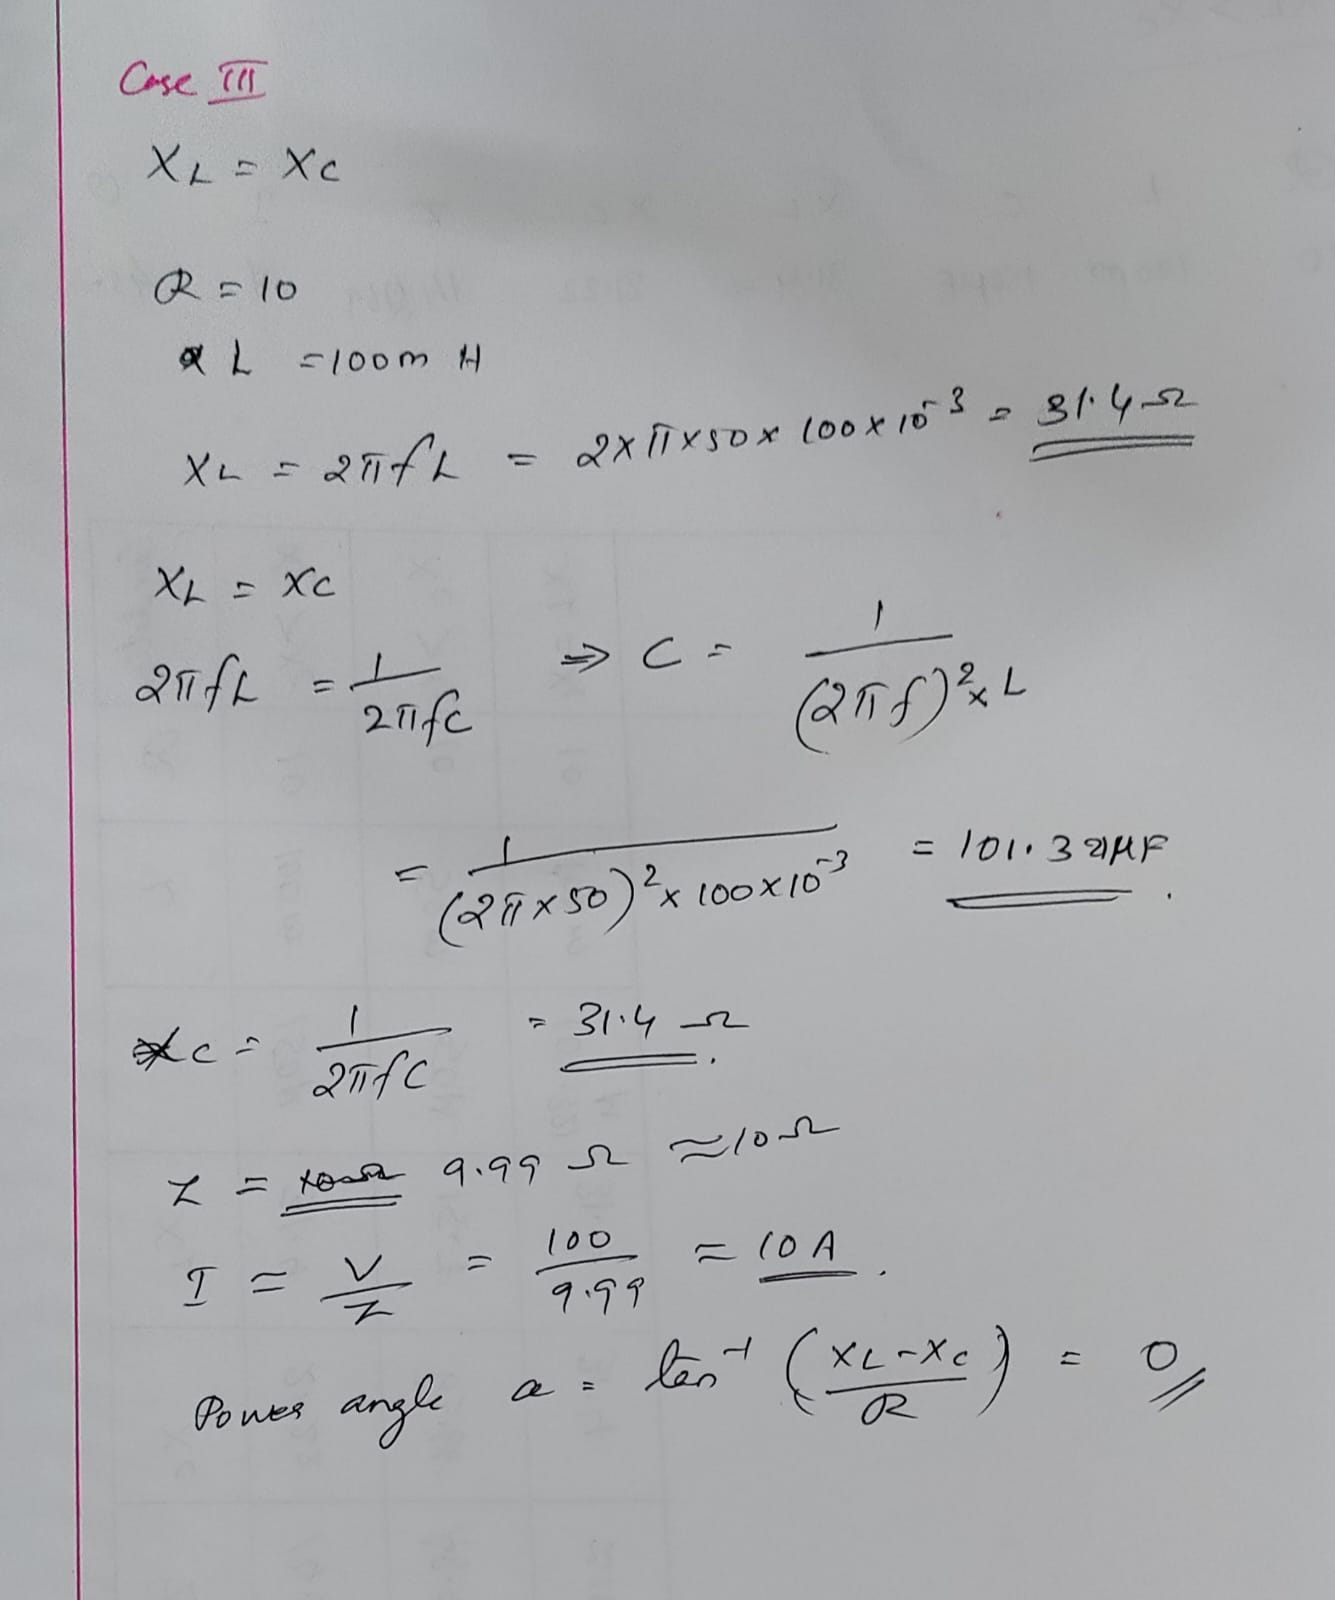 Case III
XL = XC
R = 10
L = 100m H
XL = 2πfL = 2×π×50×100×10⁻³ = 31.4Ω
XL = XC
2πfL = 1/2πfC ⇒ C = 1/(2πf)²×L
= 1/(2π×50)²×100×10⁻³ = 101.321μF.
XC = 1/2πfC = 31.4 Ω.
Z = 9.99 Ω ≈10Ω
I = V/Z = 100/9.99 = 10 A.
Power angle a = tan⁻¹ (XL-XC/R) = 0//